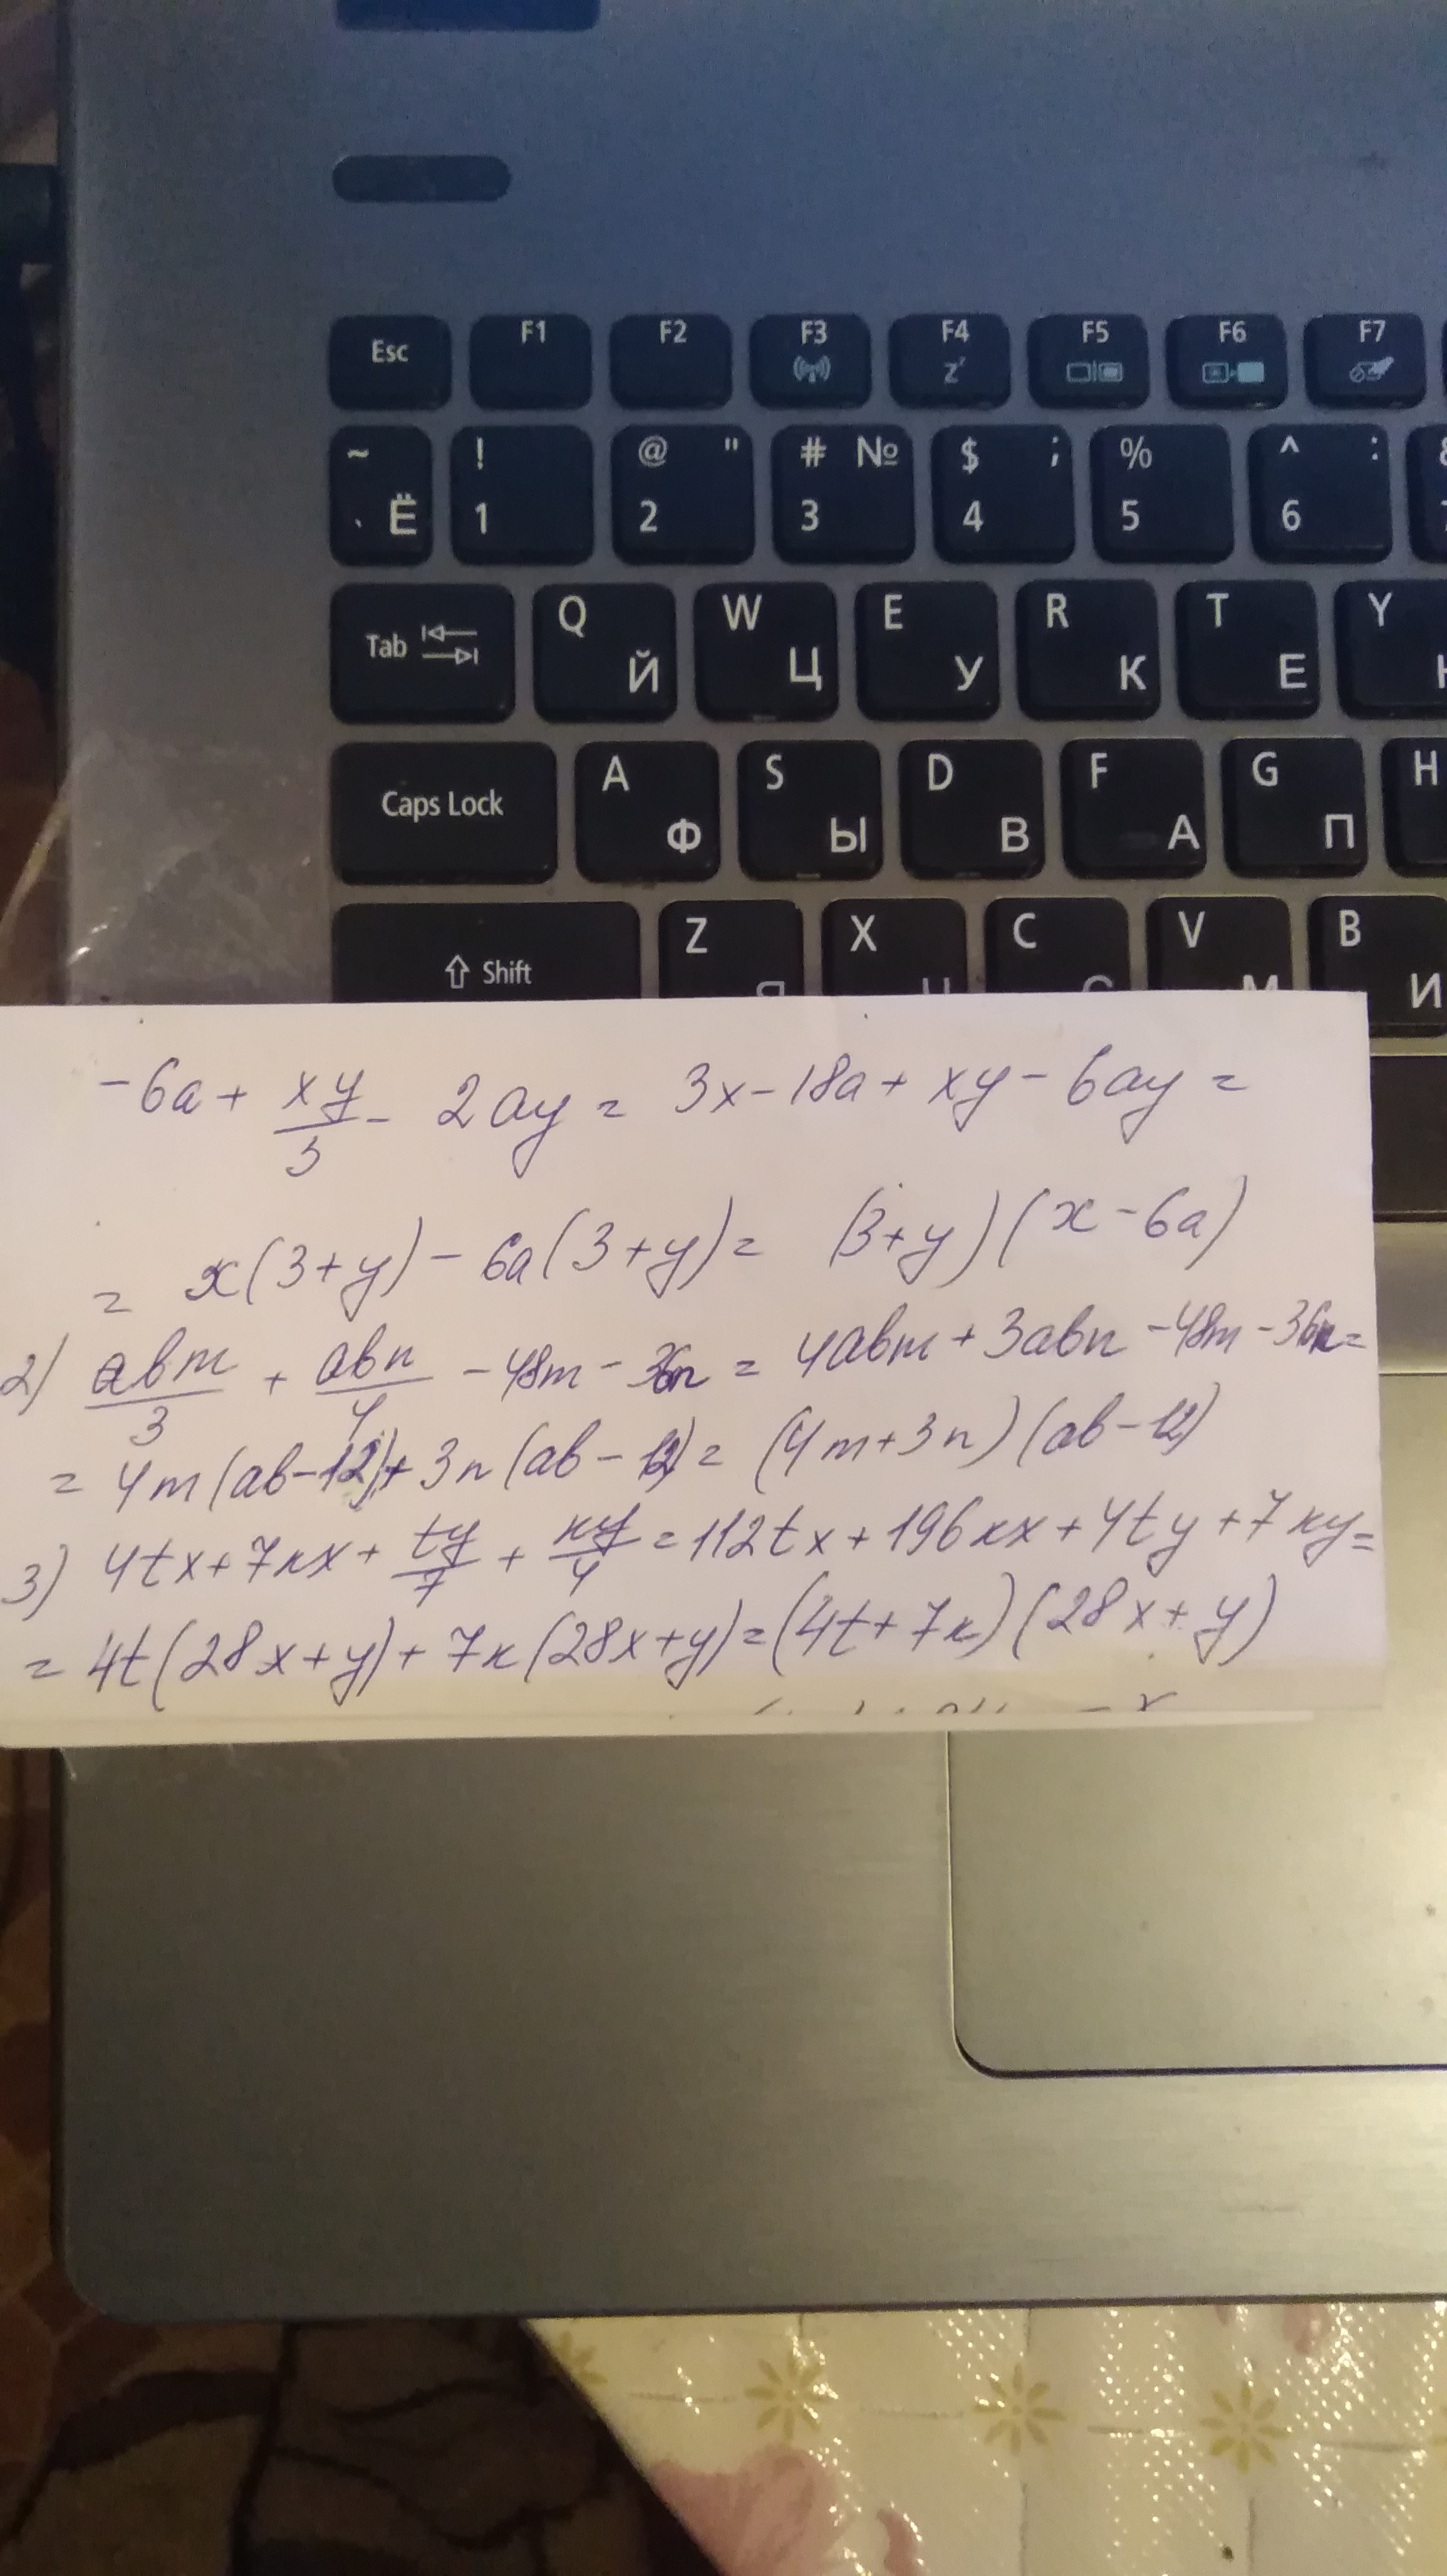 Esc F1 F2 F3 F4 Zz F5 F6 F7
~ ` Ё ! 1 @ " 2 # № 3 $ ; 4 % 5 ^ : 6
Tab Q Й W Ц E У R К T Е Y
Caps Lock A Ф S Ы D В F А G П H
⇧ Shift Z Я X Ч C С V М B И
-6a + xy/3 - 2ay = 3x - 18a + xy - 6ay =
= x(3+y) - 6a(3+y) = (3+y)(x - 6a)
2) abm/3 + abn/4 - 48m - 36n = 4abm + 3abn - 48m - 36n =
= 4m(ab-12)+3n(ab-12) = (4m+3n)(ab-12)
3) 4tx + 7kx + ty/7 + ky/4 = 112tx + 196kx + 4ty + 7ky =
= 4t(28x+y) + 7k(28x+y) = (4t+7k)(28x+y)